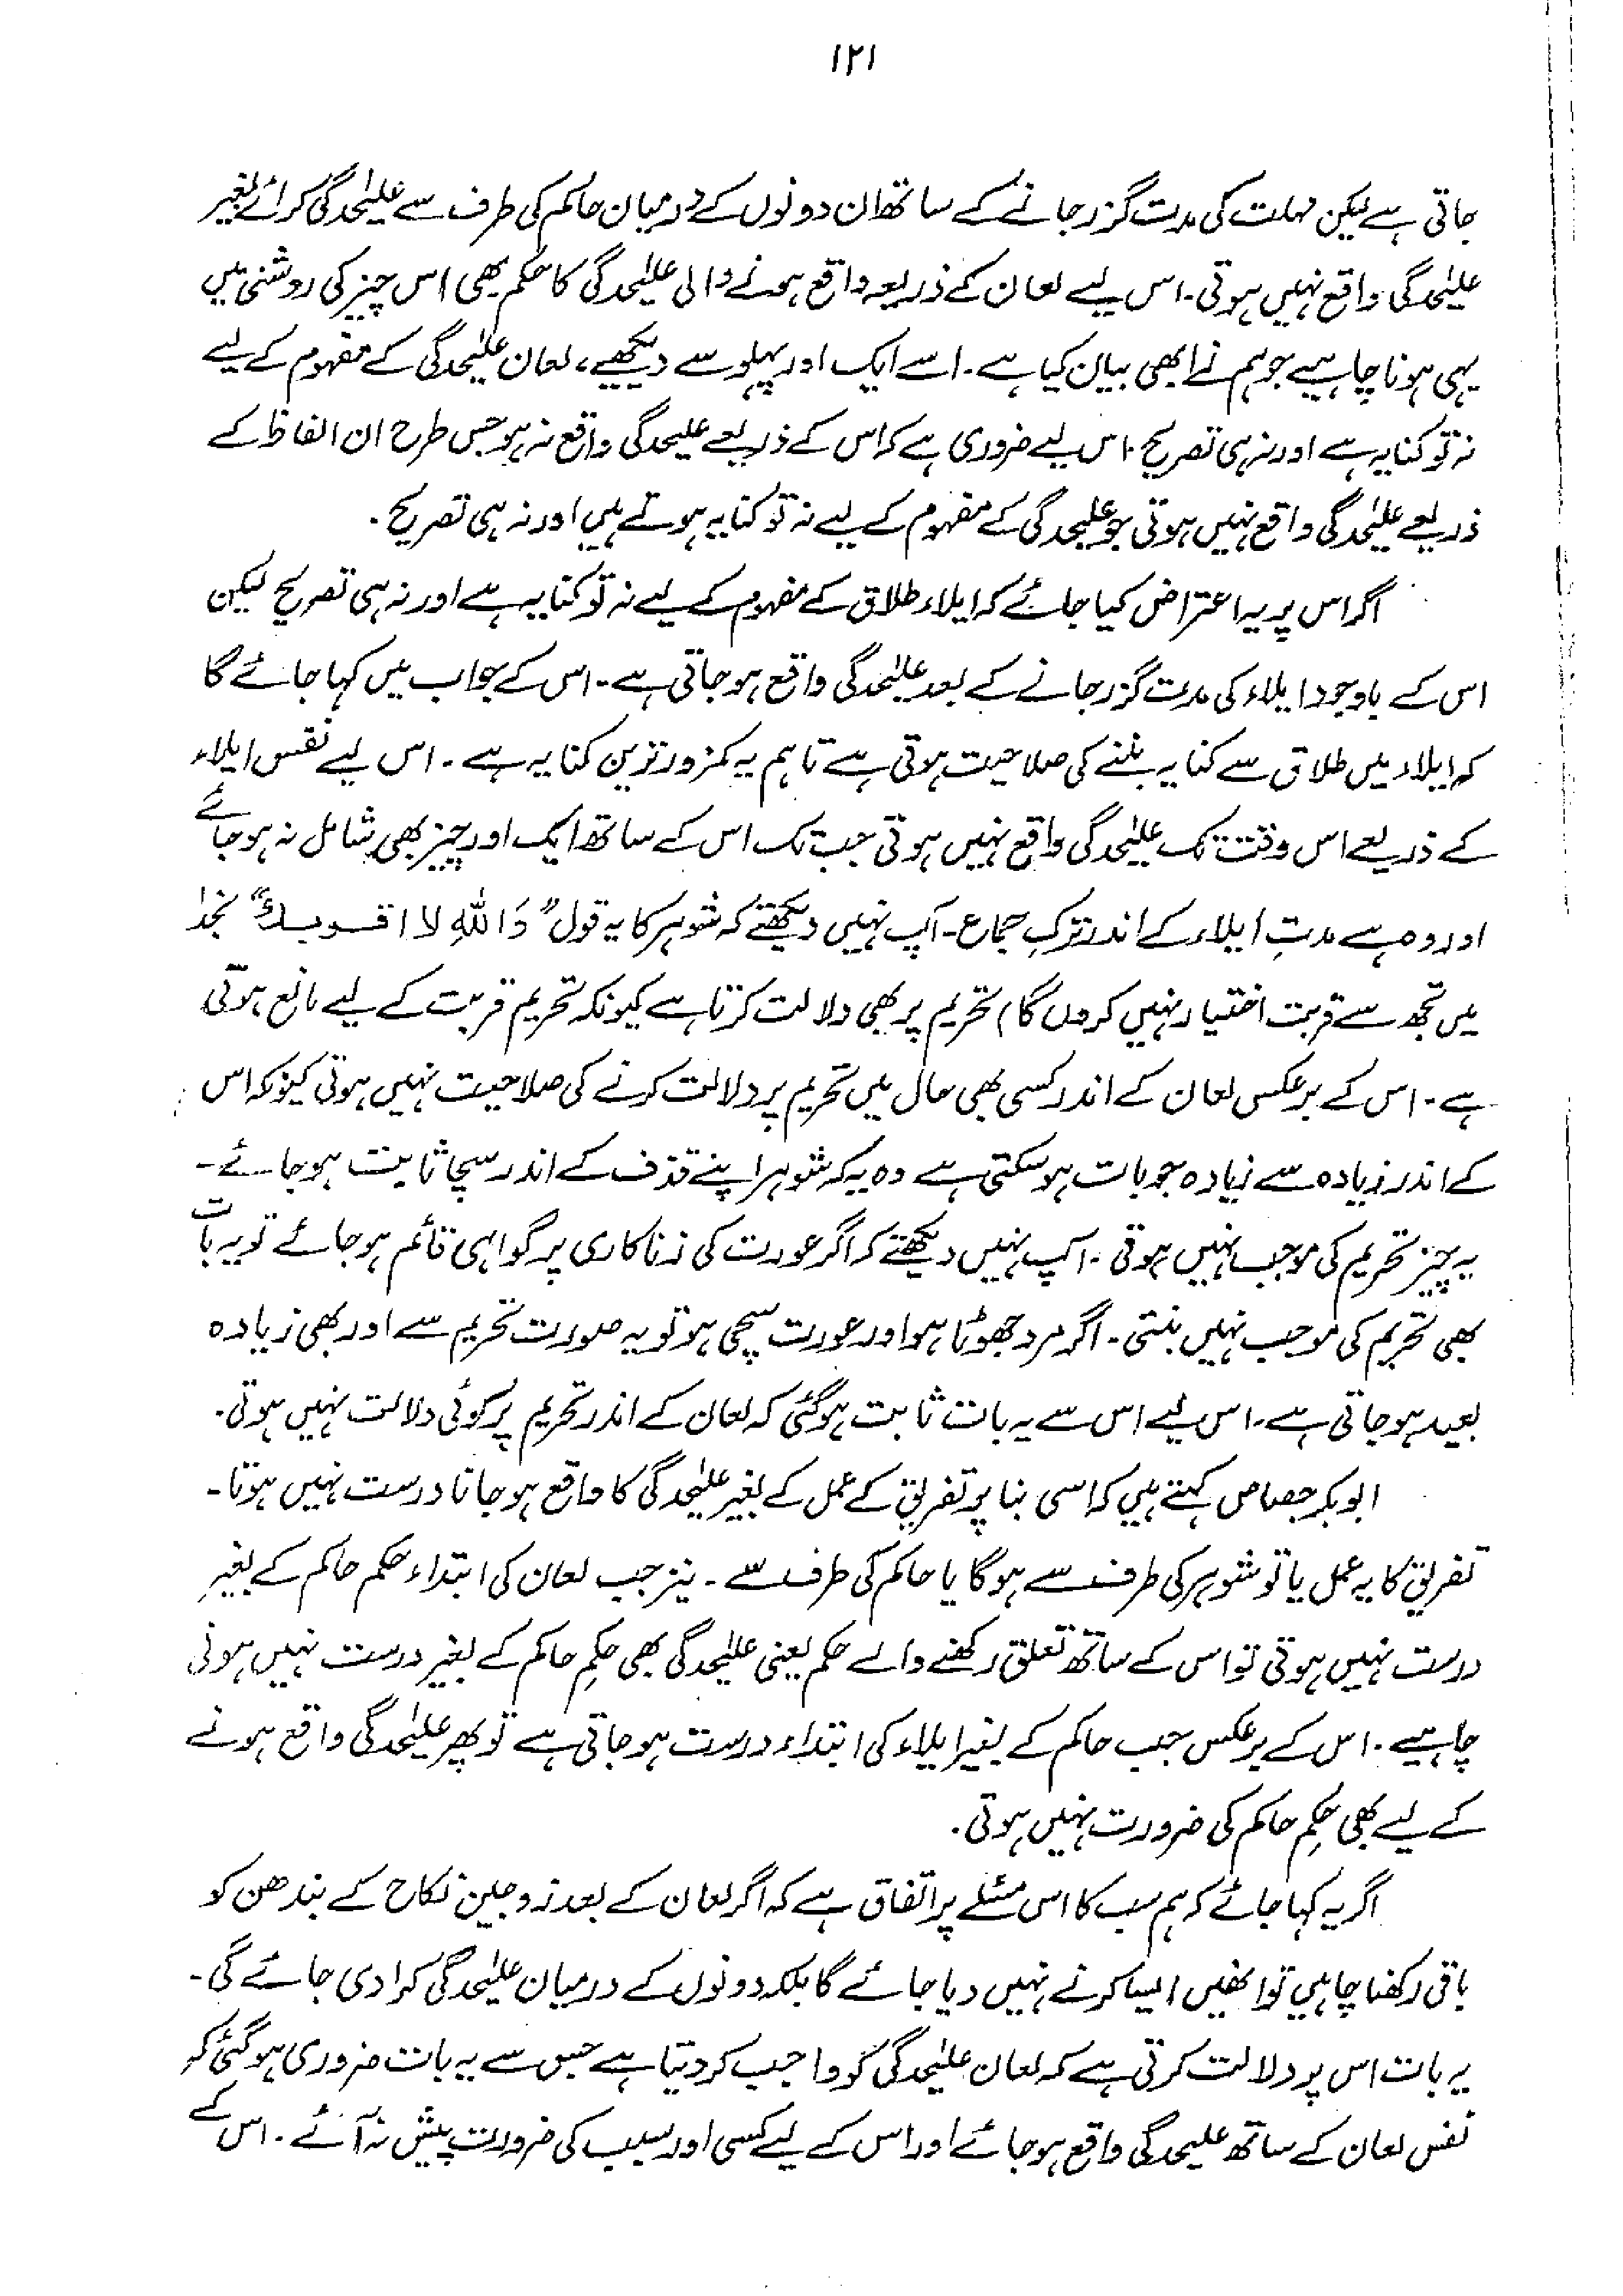 ۱۲۱
جاتی ہے لیکن مہلت کی مدت گزر جانے کے ساتھ ان دونوں کے درمیان حاکم کی طرف سے علیٰحدگی کرائے بغیر
علیٰحدگی واقع نہیں ہوتی۔ اس لیے لعان کے ذریعہ واقع ہونے والی علیٰحدگی کا حکم بھی اس چیز کی روشنی میں
یہی ہونا چاہیے جو ہم نے ابھی بیان کیا ہے۔ اسے ایک اور پہلو سے دیکھیے، لعان علیٰحدگی کے مفہوم کے لیے
نہ تو کنایہ ہے اور نہ ہی تصریح۔ اس لیے ضروری ہے کہ اس کے ذریعے علیحدگی واقع نہ ہو جس طرح ان الفاظ کے
ذریعے علیٰحدگی واقع نہیں ہوتی جو علیحدگی کے مفہوم کے لیے نہ تو کنایہ ہوتے ہیں اور نہ ہی تصریح۔
اگر اس پر یہ اعتراض کیا جائے کہ ایلاء طلاق کے مفہوم کے لیے نہ تو کنایہ ہے اور نہ ہی تصریح لیکن
اس کے باوجود ایلاء کی مدت گزر جانے کے بعد علیٰحدگی واقع ہو جاتی ہے۔ اس کے جواب میں کہا جائے گا
کہ ایلاء میں طلاق سے کنایہ بننے کی صلاحیت ہوتی ہے تاہم یہ کمزور ترین کنایہ ہے۔ اس لیے نفس ایلاء
کے ذریعے اس وقت تک علیٰحدگی واقع نہیں ہوتی جب تک اس کے ساتھ ایک اور چیز بھی شامل نہ ہو جائے
اور وہ ہے مدتِ ایلاء کے اندر ترکِ جماع۔ آپ نہیں دیکھتے کہ شوہر کا یہ قول "وَاللّٰہِ لا اقربك" بخدا
میں تجھ سے قربت اختیار نہیں کروں گا) تحریم پر بھی دلالت کرتا ہے کیونکہ تحریم قربت کے لیے مانع ہوتی
ہے۔ اس کے برعکس لعان کے اندر کسی بھی حال میں تحریم پر دلالت کرنے کی صلاحیت نہیں ہوتی کیونکہ اس
کے اندر زیادہ سے زیادہ جو بات ہو سکتی ہے وہ یہ کہ شوہر اپنے قذف کے اندر سچا ثابت ہو جائے۔
یہ چیز تحریم کی موجب نہیں ہوتی۔ آپ نہیں دیکھتے کہ اگر عورت کی زنا کاری پر گواہی قائم ہو جائے تو یہ بات
بھی تحریم کی موجب نہیں بنتی۔ اگر مرد جھوٹا ہو اور عورت سچی ہو تو یہ صورت تحریم سے اور بھی زیادہ
بعید ہو جاتی ہے۔ اس لیے اس سے یہ بات ثابت ہو گئی کہ لعان کے اندر تحریم پر کوئی دلالت نہیں ہوتی۔
ابو بکر جصاص کہتے ہیں کہ اسی بنا پر تفریق کے عمل کے بغیر علیٰحدگی کا واقع ہو جانا درست نہیں ہوتا۔
تفریق کا یہ عمل یا تو شوہر کی طرف سے ہوگا یا حاکم کی طرف سے۔ نیز جب لعان کی ابتداء حکم حاکم کے بغیر
درست نہیں ہوتی تو اس کے ساتھ تعلق رکھنے والے حکم یعنی علیٰحدگی بھی حکمِ حاکم کے بغیر درست نہیں ہونی
چاہیے۔ اس کے برعکس جب حاکم کے بغیر ایلاء کی ابتداء درست ہو جاتی ہے تو پھر علیٰحدگی واقع ہونے
کے لیے بھی حکمِ حاکم کی ضرورت نہیں ہوتی۔
اگر یہ کہا جائے کہ ہم سب کا اس مسئلے پر اتفاق ہے کہ اگر لعان کے بعد زوجین نکاح کے بندھن کو
باقی رکھنا چاہیں تو انھیں ایسا کرنے نہیں دیا جائے گا بلکہ دونوں کے درمیان علیٰحدگی کرا دی جائے گی۔
یہ بات اس پر دلالت کرتی ہے کہ لعان علیٰحدگی کو واجب کر دیتا ہے جس سے یہ بات ضروری ہو گئی کہ
نفس لعان کے ساتھ علیحدگی واقع ہو جائے اور اس کے لیے کسی اور سبب کی ضرورت پیش نہ آئے۔ اس کے